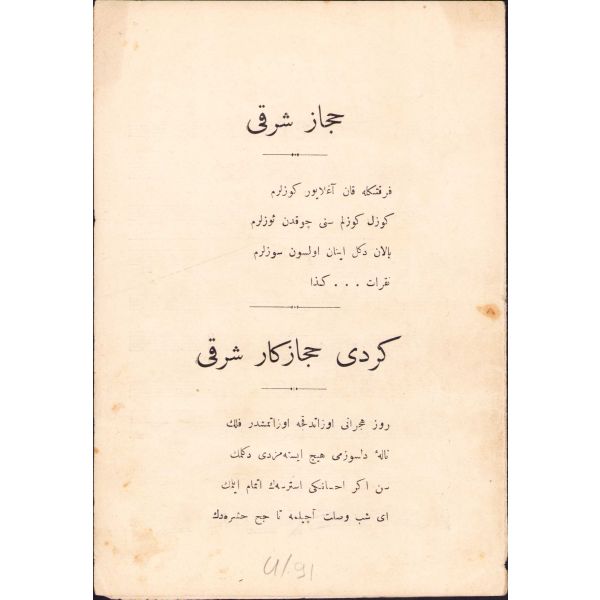 حجاز شرقی
فرقتكله قان آغلایور كوزلرم
كوزل كوزلم سنی چوقدن ئوزلرم
یالان دكل اینان اولسون سوزلرم
نقرات . . . كذا
كردی حجازكار شرقی
روز هجرانی اوزاتدقجه اوزاتمشدر فلك
نالهٔ دلسوزمی هیچ ایسته‌مزدی دكلمك
سن اكر احسانكی استرسه‌ك اتمام ایلمك
ای شب وصلت آچیلمه تا صبح حشره‌دك